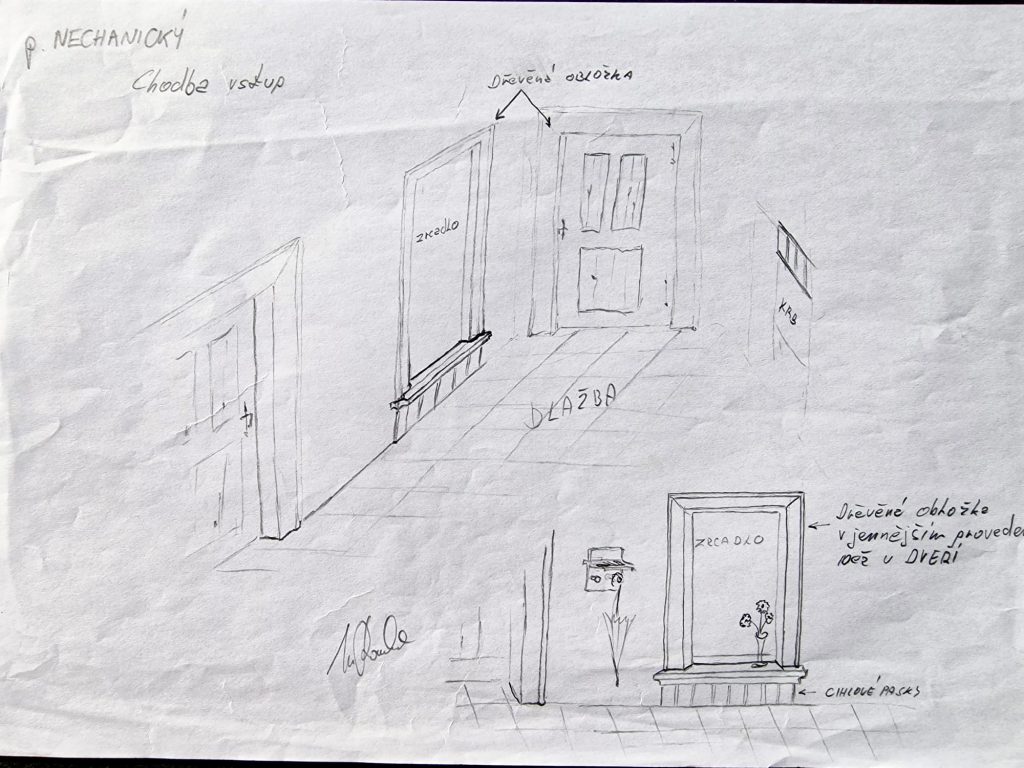 p. NECHANICKÝ
Chodba vstup
Dřevěná obložka
ZRCADLO
KRB
DLAŽBA
ZRCADLO
Dřevěná obložka
v jemnějším provede
než u DVEŘÍ
CIHLOVÉ PÁSKY